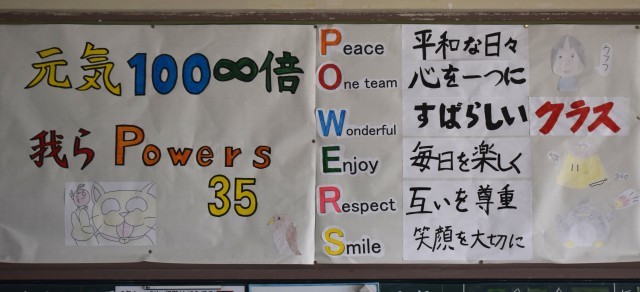 元気100∞倍
我ら Powers
35
Peace 平和な日々
One team 心を一つに
Wonderful すばらしい クラス
Enjoy 毎日を楽しく
Respect 互いを尊重
Smile 笑顔を大切に